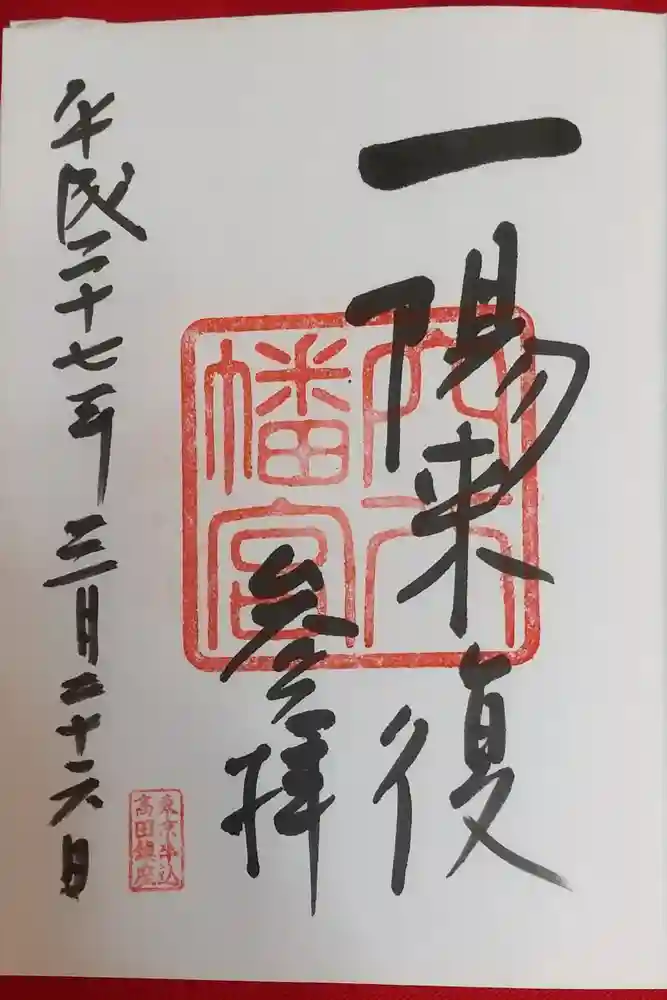 一陽来復
穴八
幡宮
参拝
東京牛込
高田鎮座
平成二十七年三月二十六日